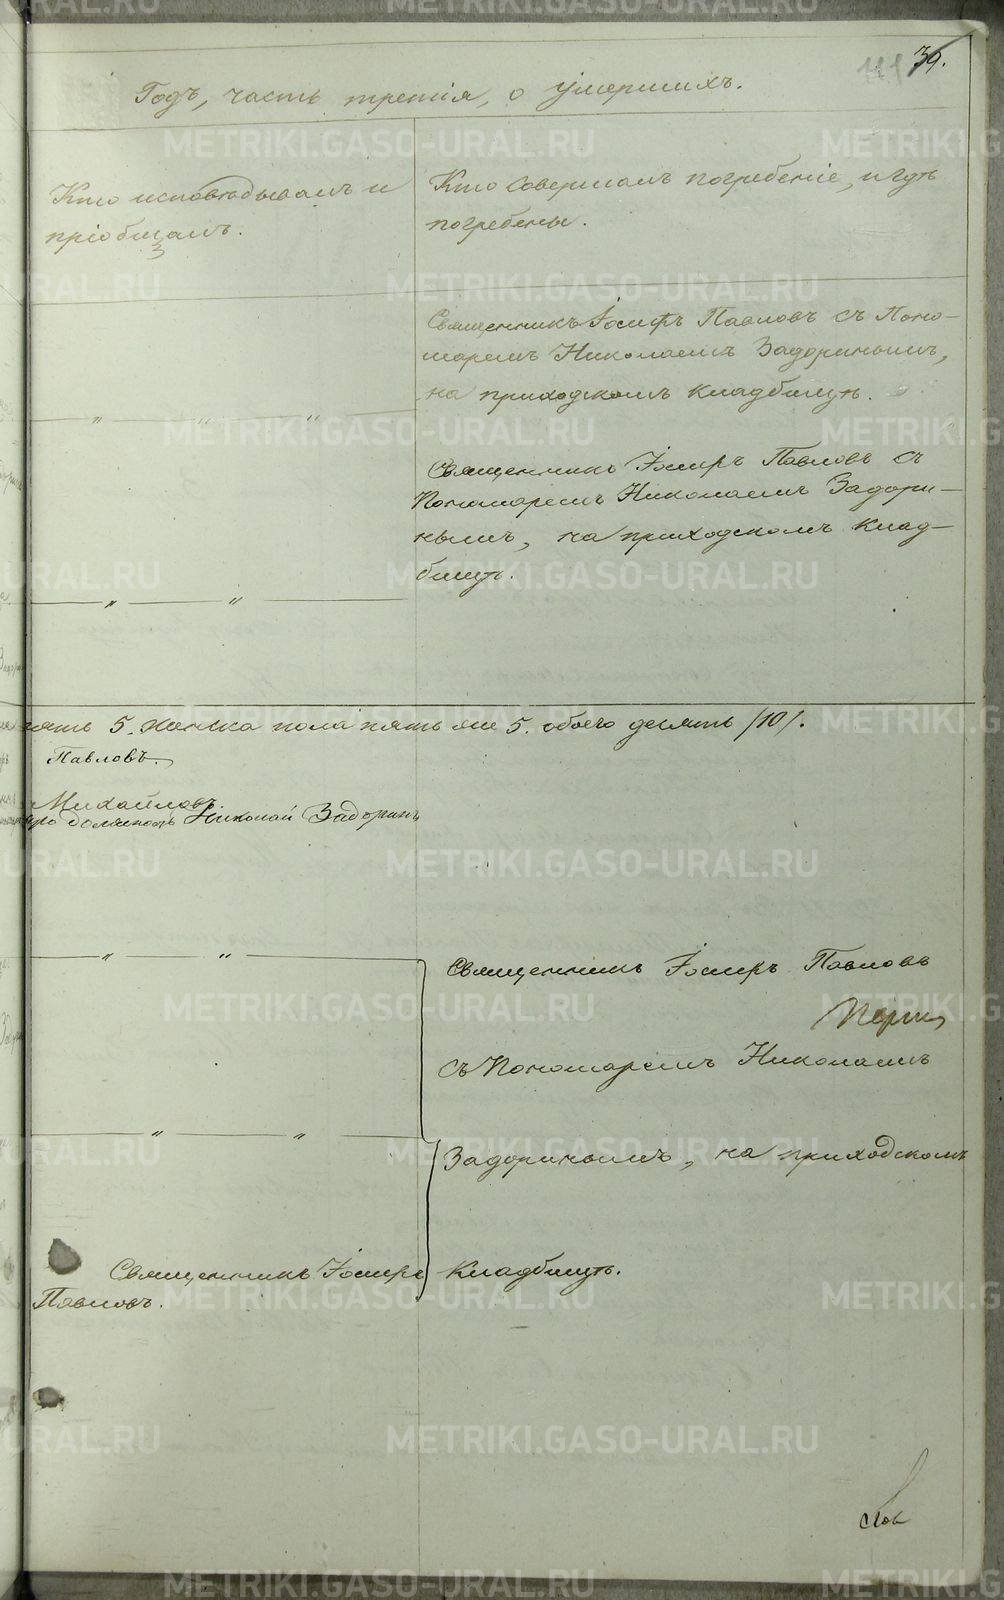 39.
Годъ, часть третія, о умершихъ.
Кто исповѣдывалъ и
пріобщалъ.
Кто совершалъ погребеніе, и гдѣ
погребены.
Священникъ Іосифъ Павловъ съ Поно-
маремъ Николаемъ Задоринымъ,
на приходскомъ кладбищѣ.
Священникъ Іосифъ Павловъ съ
Пономаремъ Николаемъ Задори-
нымъ, на приходскомъ клад-
бищѣ.
пять 5. женска пола пять же 5. обоего десять /10/.
Павловъ.
Михайловъ
Николай Задоринъ
Священникъ Іосифъ Павловъ
съ Пономаремъ Николаемъ
Задоринымъ, на приходскомъ
Священникъ Іосифъ
Павловъ.
кладбищѣ.
METRIKI.GASO-URAL.RU